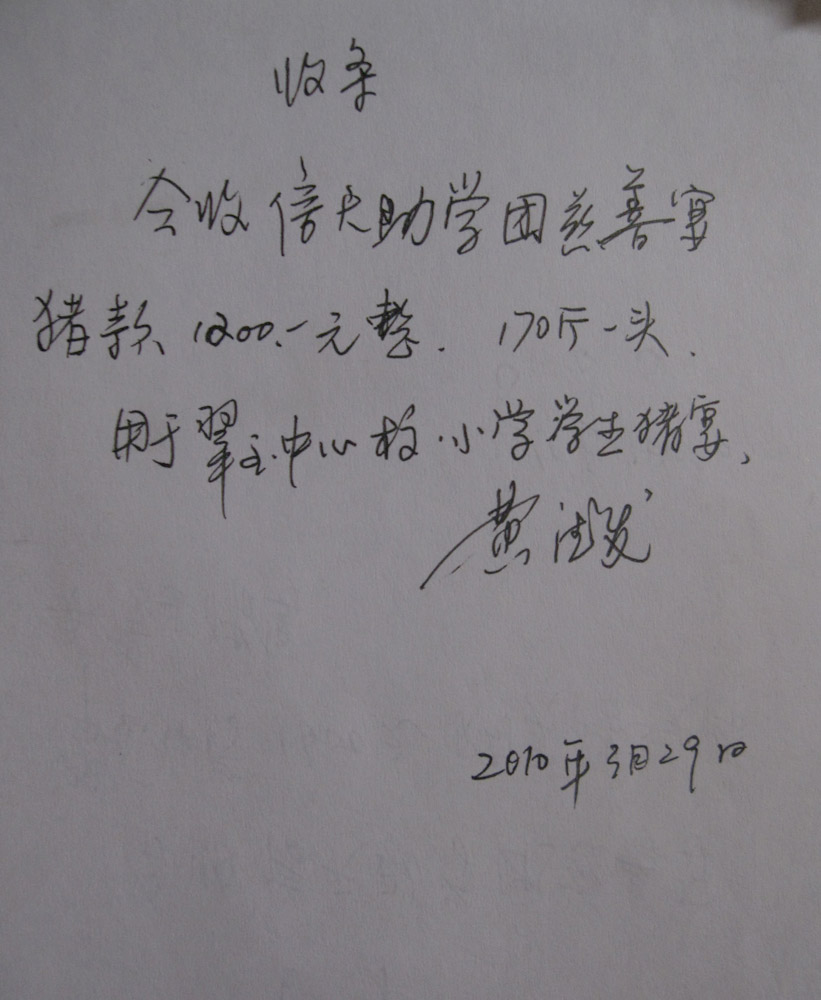 收条
今收倚天助学团慈善宴
猪款1200.-元整. 170斤一头.
用于翠玉中心校小学学生猪宴、
黄 发
2010年3月29日